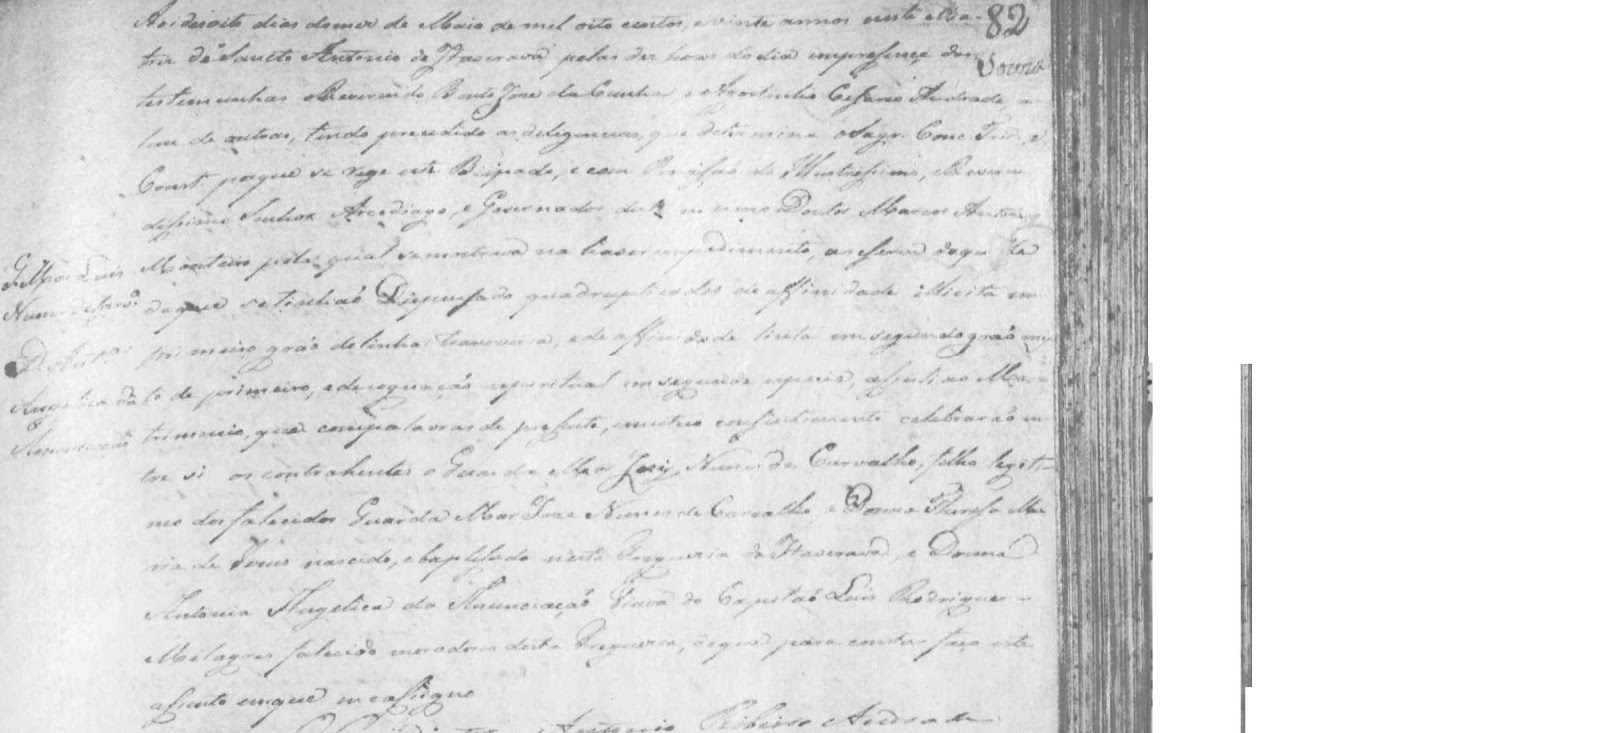 82
Aos desoito dias do mes de Maio de mil oito centos, e vinte annos nesta Ma-
triz de Sancto Antonio de Itaverava pelas des horas do dia em presença das
testemunhas o Reverendo Bento Joze da Cunha, e Agostinho Cesario Andrade, a-
lem de outras, tendo precedido as deligencias, que determina o Sagr. Conc. Trid., e
Const. porque se rege este Bispado, e com Provisaõ do Illustrissimo, e Reveren
dissimo Senhor Arcediago, e Governador do mesmo Doutor Marcos Antonio
Monteiro pela qual se mostrava na haver impedimento, a reserva daque la
de que se tinhaõ Dispensado quadruplicados de affinidade illicita em
primeiro gráo de linha transversa, e de affinidade licita em segundo gráo mix
to de primeiro, e de cognaçaõ espiritual em segunda especie, assisti ao Ma
trimonio, que com palavras de presente, e mutuo consentimento celebraraõ en
tre si os contrahentes o Guarda Mor Luis Nunes de Carvalho, filho legiti-
mo dos falecidos Guarda Mor Joze Nunes de Carvalho e Donna Theresa Ma
ria de Jesus nascido, e baptisado nesta Freguesia de Itaverava, e Donna
Antonia Angelica da Annunciaçaõ Viuva do Capitaõ Luis Rodrigues
Milagres falecido moradores desta Freguesia, de que para constar faço este
assento em que me assigno
Antonio Ribeiro Andrade
G. Mor Luis
Nunes de Carv.º
D. Ant.ª
Angelica da
Annunciaçaõ